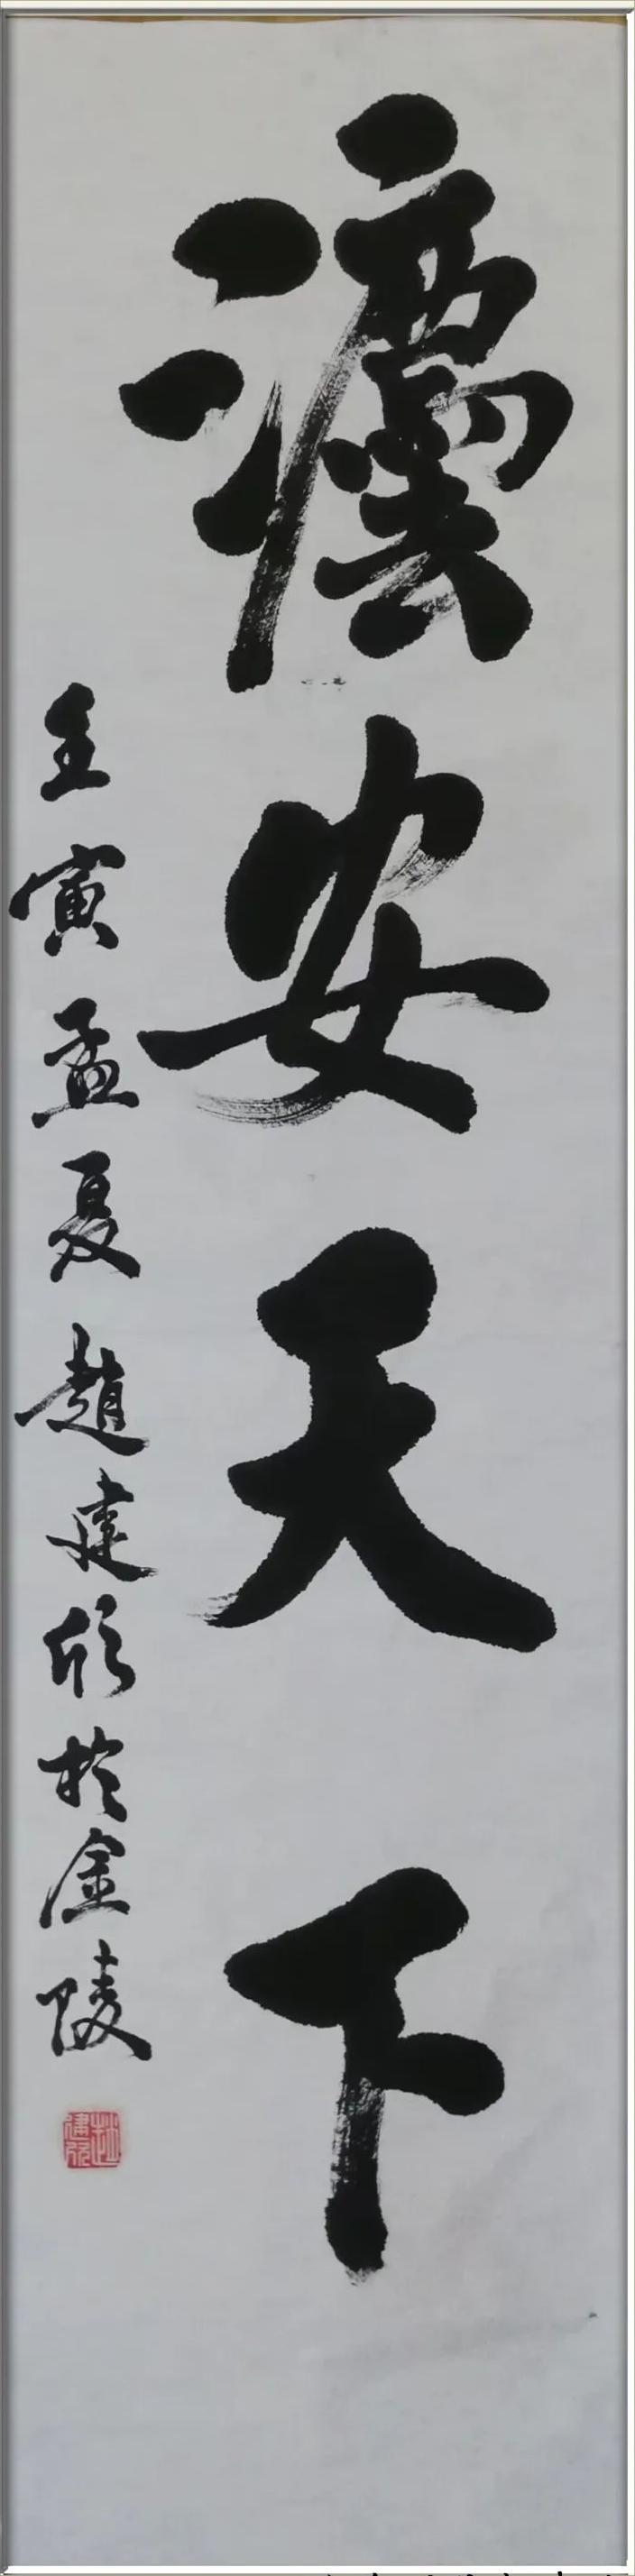 灋安天下
壬寅孟夏趙建欣於金陵
趙建欣